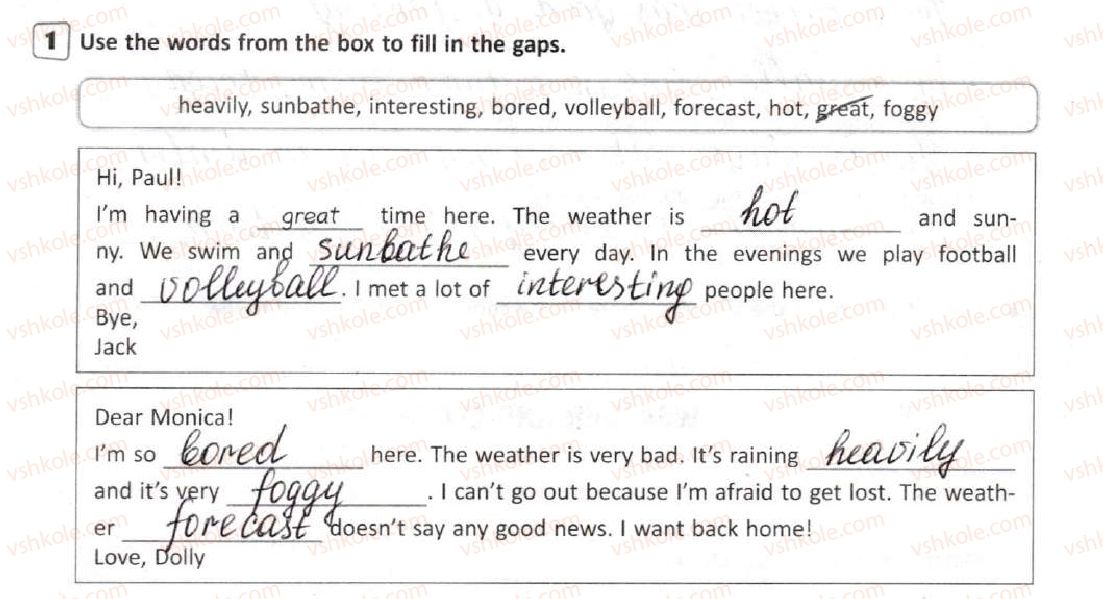 1 Use the words from the box to fill in the gaps.
heavily, sunbathe, interesting, bored, volleyball, forecast, hot, great, foggy
Hi, Paul!
I'm having a great time here. The weather is hot and sun-
ny. We swim and sunbathe every day. In the evenings we play football
and volleyball. I met a lot of interesting people here.
Bye,
Jack
Dear Monica!
I'm so bored here. The weather is very bad. It's raining heavily
and it's very foggy. I can't go out because I'm afraid to get lost. The weath-
er forecast doesn't say any good news. I want back home!
Love, Dolly
vshkole.com